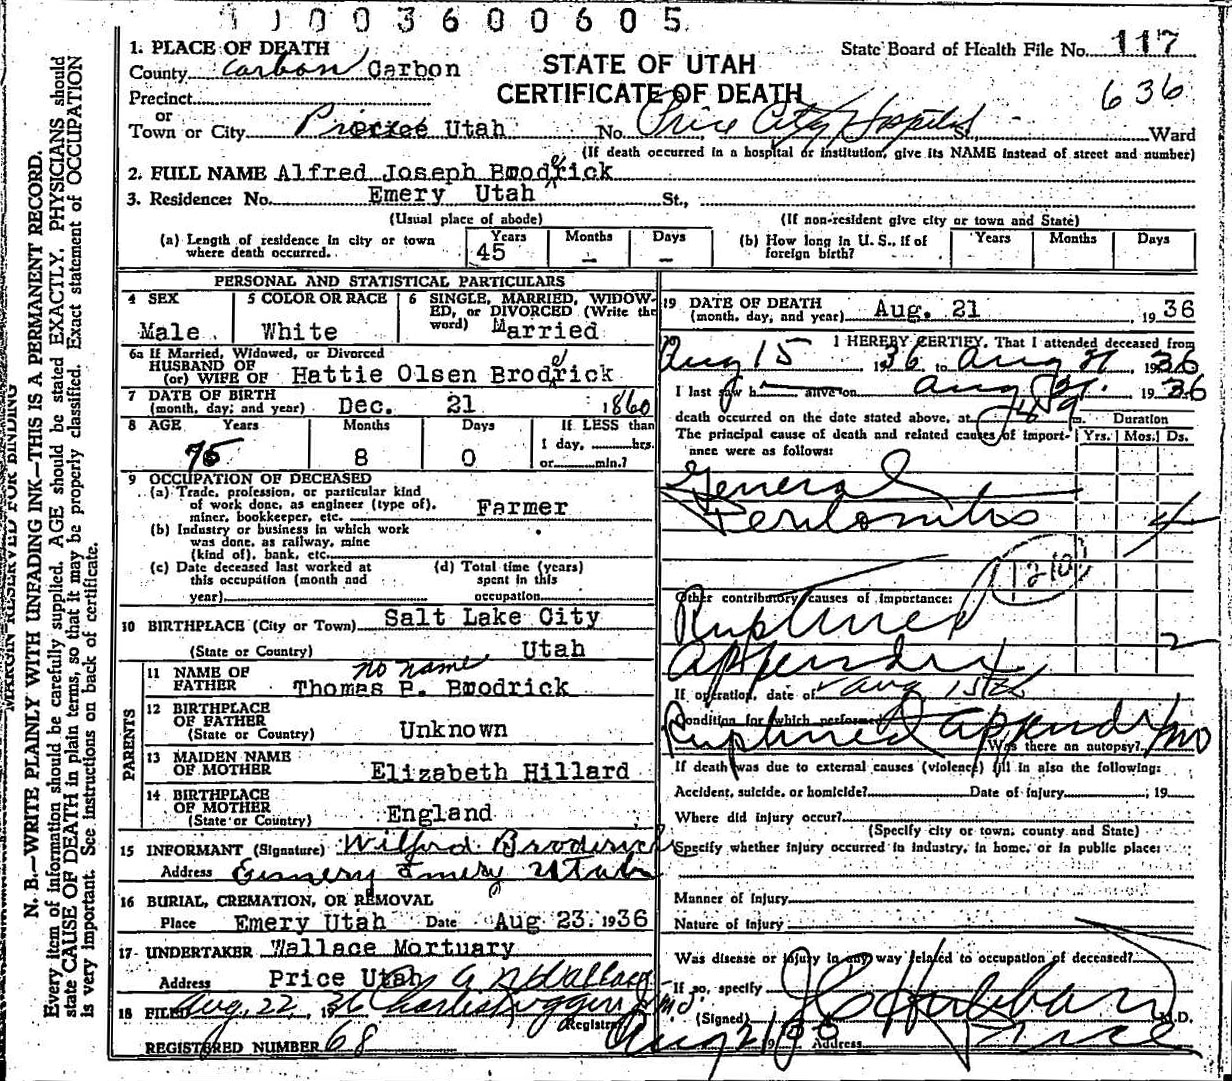 1003600605
1. PLACE OF DEATH
County Carbon Carbon
STATE OF UTAH
CERTIFICATE OF DEATH
State Board of Health File No. 117
636
Precinct
or
Town or City Price Utah No. Price City Hospital St. Ward
(If death occurred in a hospital or institution, give its NAME instead of street and number)
2. FULL NAME Alfred Joseph Broderick
3. Residence: No. Emery Utah St.,
(Usual place of abode) (If non-resident give city or town and State)
(a) Length of residence in city or town where death occurred. Years 45 Months - Days -
(b) How long in U. S., if of foreign birth? Years Months Days
PERSONAL AND STATISTICAL PARTICULARS
4 SEX Male
5 COLOR OR RACE White
6 SINGLE, MARRIED, WIDOWED, or DIVORCED (Write the word) Married
6a If Married, Widowed, or Divorced
HUSBAND OF
(or) WIFE OF Hattie Olsen Broderick
7 DATE OF BIRTH
(month, day, and year) Dec. 21 1860
8 AGE Years 75 Months 8 Days 0 If LESS than
1 day, hrs.
or min.?
9 OCCUPATION OF DECEASED
(a) Trade, profession, or particular kind
of work done, as engineer (type of),
miner, bookkeeper, etc. Farmer
(b) Industry or business in which work
was done, as railway, mine
(kind of), bank, etc.
(c) Date deceased last worked at
this occupation (month and
year)
(d) Total time (years)
spent in this
occupation
10 BIRTHPLACE (City or Town) Salt Lake City
(State or Country) Utah
PARENTS
11 NAME OF
FATHER no name
Thomas P. Brodrick
12 BIRTHPLACE
OF FATHER
(State or Country) Unknown
13 MAIDEN NAME
OF MOTHER Elizabeth Hillard
14 BIRTHPLACE
OF MOTHER
(State or Country) England
15 INFORMANT (Signature) Wilford Broderick
Address Emery Emery Utah
16 BURIAL, CREMATION, OR REMOVAL
Place Emery Utah Date Aug 23, 1936
17 UNDERTAKER Wallace Mortuary
Address Price Utah
18 FILED Aug. 22, 1936
Registrar
REGISTERED NUMBER 68
19 DATE OF DEATH
(month, day, and year) Aug. 21 1936
I HEREBY CERTIFY, That I attended deceased from
Aug 15 1936 to Aug 21 1936
I last saw h alive on Aug 21 1936
death occurred on the date stated above, at m. Duration
The principal cause of death and related causes of importance were as follows: Yrs. Mos. Ds.
General
Peritonitis 4
Other contributory causes of importance:
Ruptured
Appendix 2
If operation, date of Aug 15th
Condition for which performed
Ruptured Appendix
Was there an autopsy? no
If death was due to external causes (violence) fill in also the following:
Accident, suicide, or homicide? Date of injury 19
Where did injury occur?
(Specify city or town, county and State)
Specify whether injury occurred in industry, in home, or in public place:
Manner of Injury
Nature of Injury
Was disease or injury in any way related to occupation of deceased?
If so, specify
(Signed) M.D.
Address Price
MARGIN RESERVED FOR BINDING
N. B.—WRITE PLAINLY WITH UNFADING INK—THIS IS A PERMANENT RECORD.
Every item of information should be carefully supplied. AGE should be stated EXACTLY. PHYSICIANS should
state CAUSE OF DEATH in plain terms, so that it may be properly classified. Exact statement of OCCUPATION
is very important. See instructions on back of certificate.